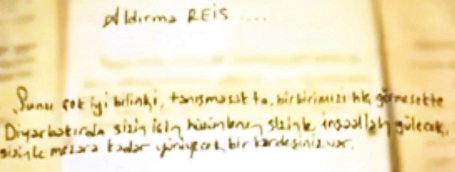 Aldırma REİS ...
Şunu çok iyi bilinki, tanışmasakta, birbirimizi hiç görmesekte
Diyarbakırda sizin için hüzünlenen sizinle inşaallah gülecek,
sizinle mezara kadar yürüyecek bir kardeşiniz var.